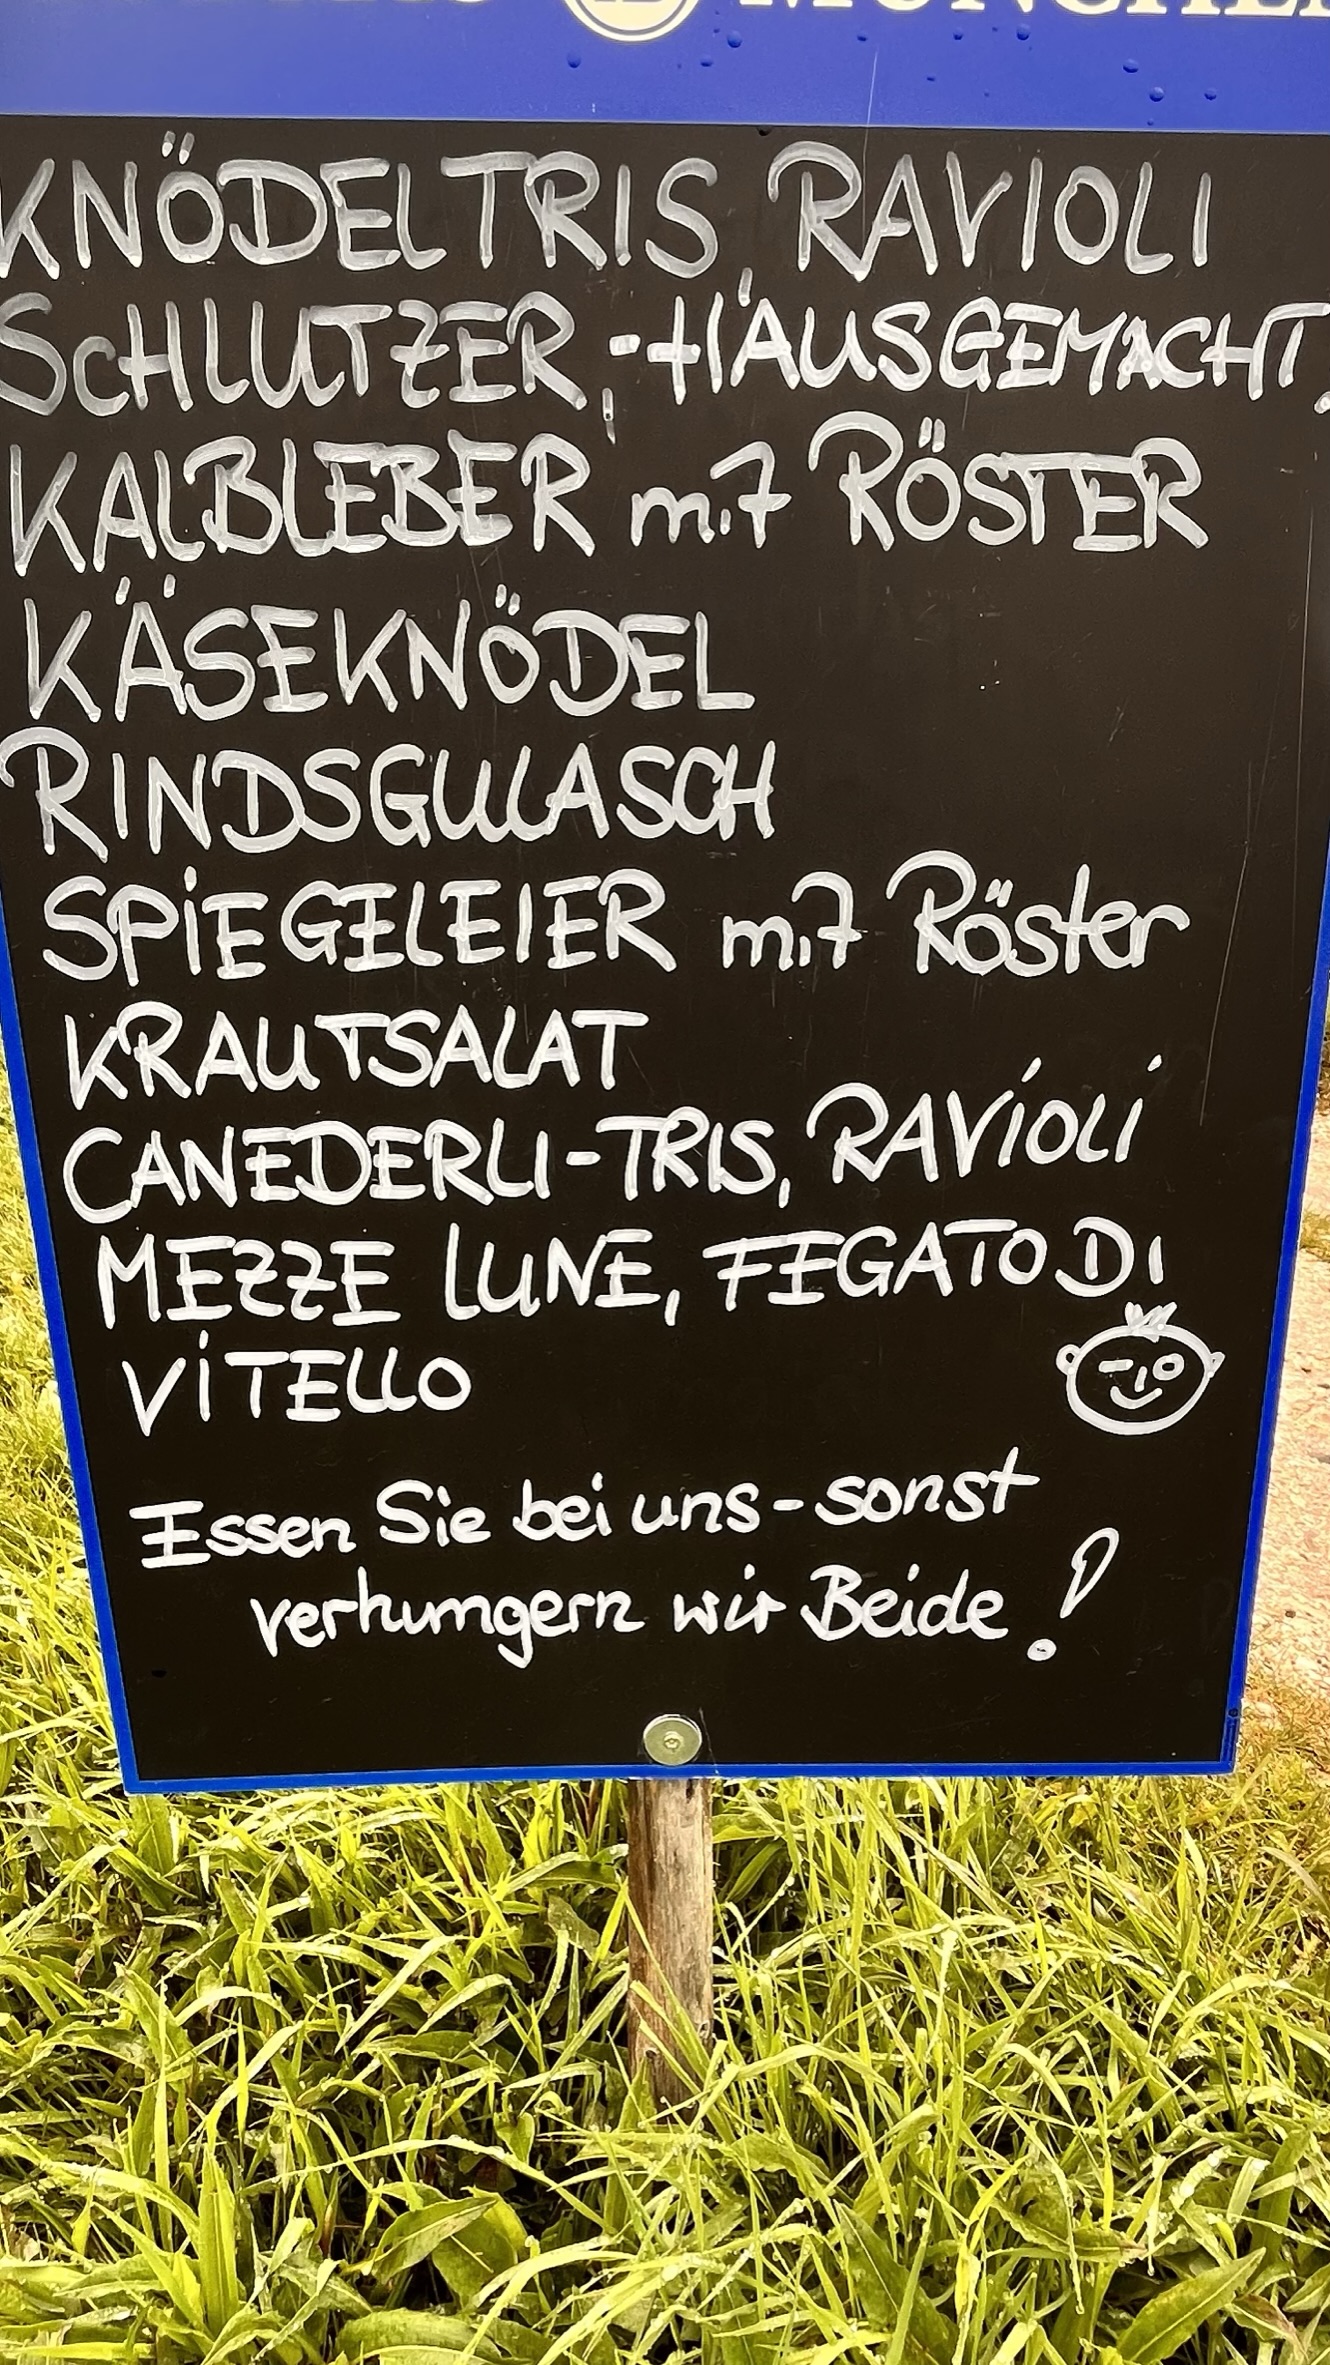 MÜNCHEN
KNÖDELTRIS, RAVIOLI
SCHLUTZER, -HAUSGEMACHT.
KALBLEBER mit RÖSTER
KÄSEKNÖDEL
RINDSGULASCH
SPIEGELEIER mit Röster
KRAUTSALAT
CANEDERLI-TRIS, RAVIOLI
MEZZE LUNE, FEGATO DI
VITELLO
Essen Sie bei uns - sonst
verhungern wir Beide!